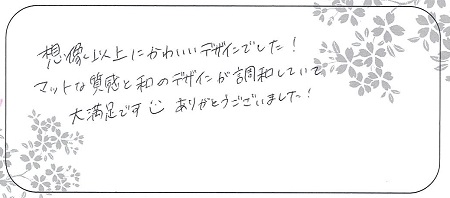 想像以上にかわいいデザインでした！
マットな質感と和のデザインが調和していて、
大満足です☺ ありがとうございました！